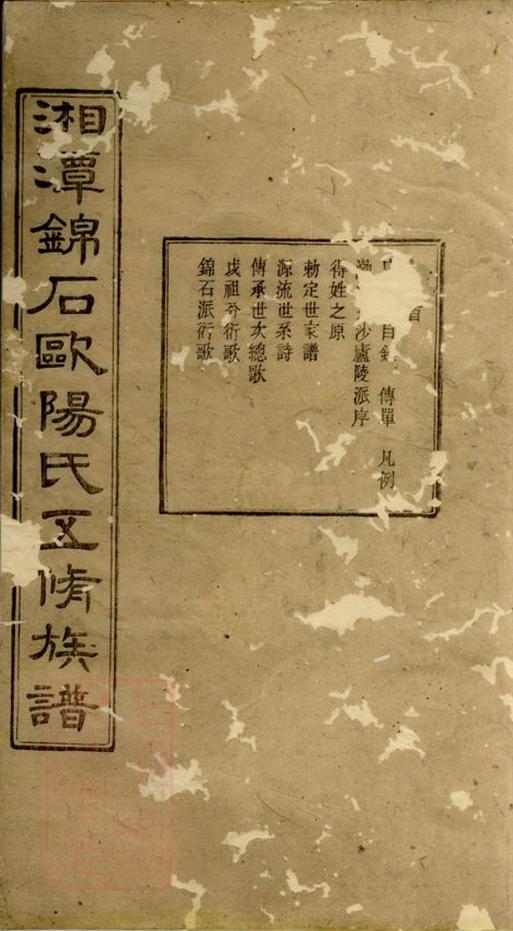 湘潭錦石歐陽氏五脩族譜
首
目錄 傳單 凡例
沙廬陵派序
得姓之原
勅定世家譜
源流世系詩
傳承世次總歌
戉祖兮衍歌
錦石派衍歌